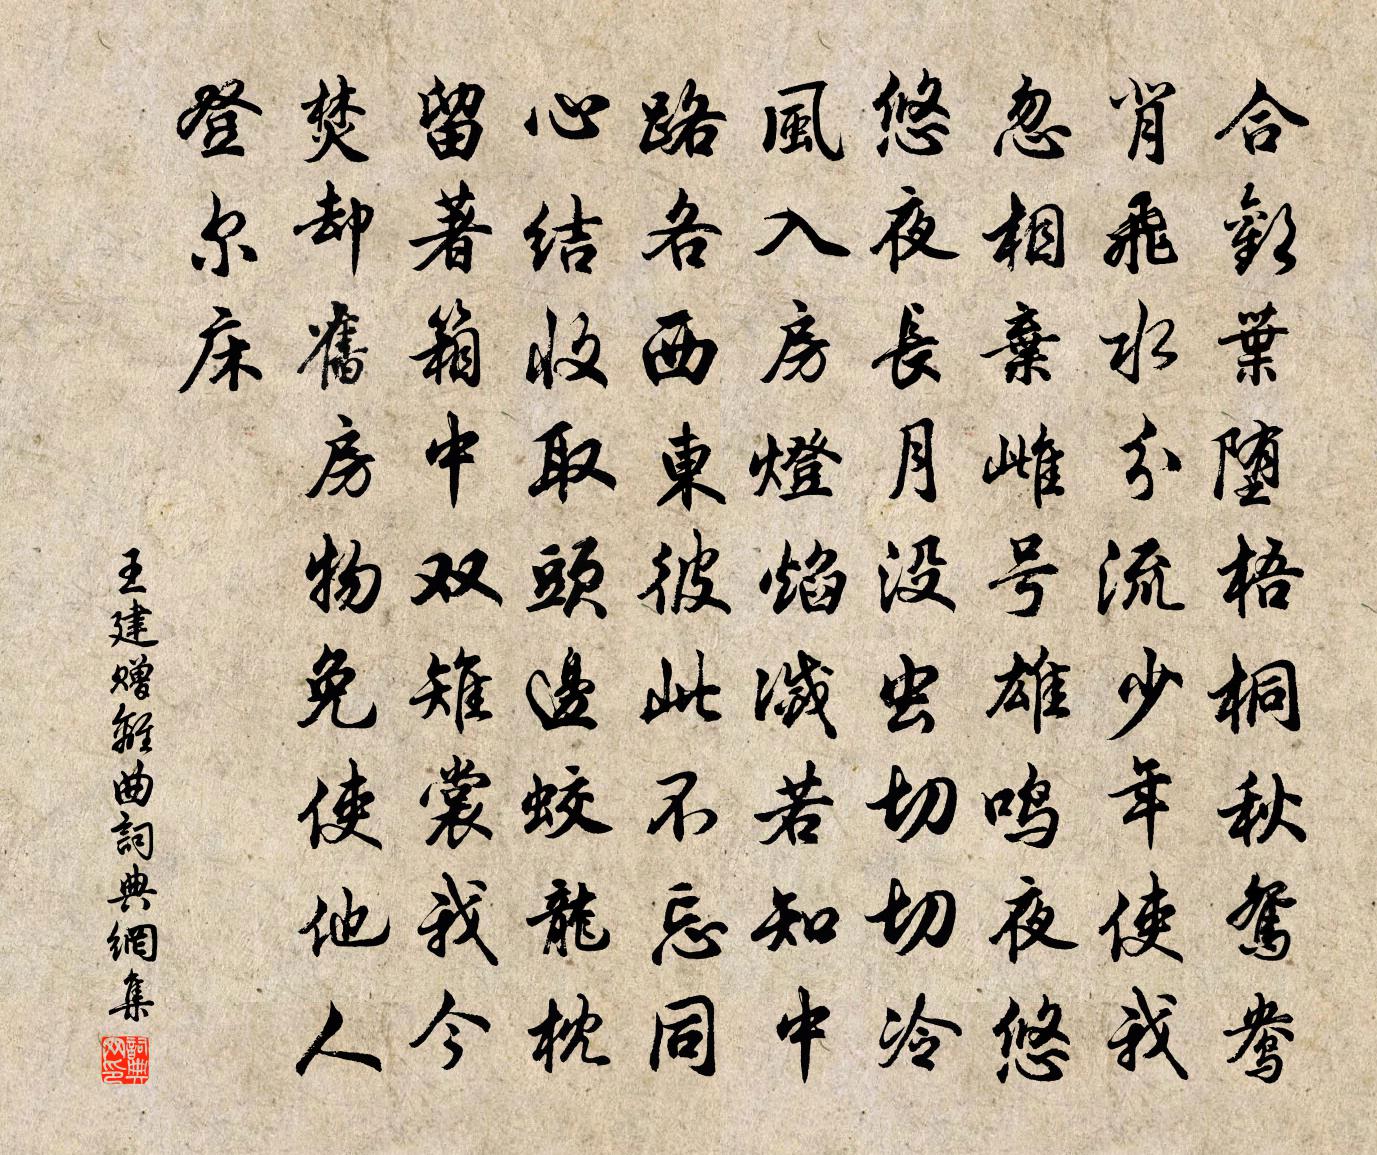 合歡葉堕梧桐秋鴛鴦
肖飛水分流少年使我
忽相棄雌号雄鳴夜悠
悠夜長月没虫切切冷
風入房燈焰滅若知中
路各西東彼此不忘同
心結收取頭邊蛟龍枕
留著箱中双雉裳我今
焚却舊房物免使他人
登尔床
王建贈離曲詞典網集
詞典网印